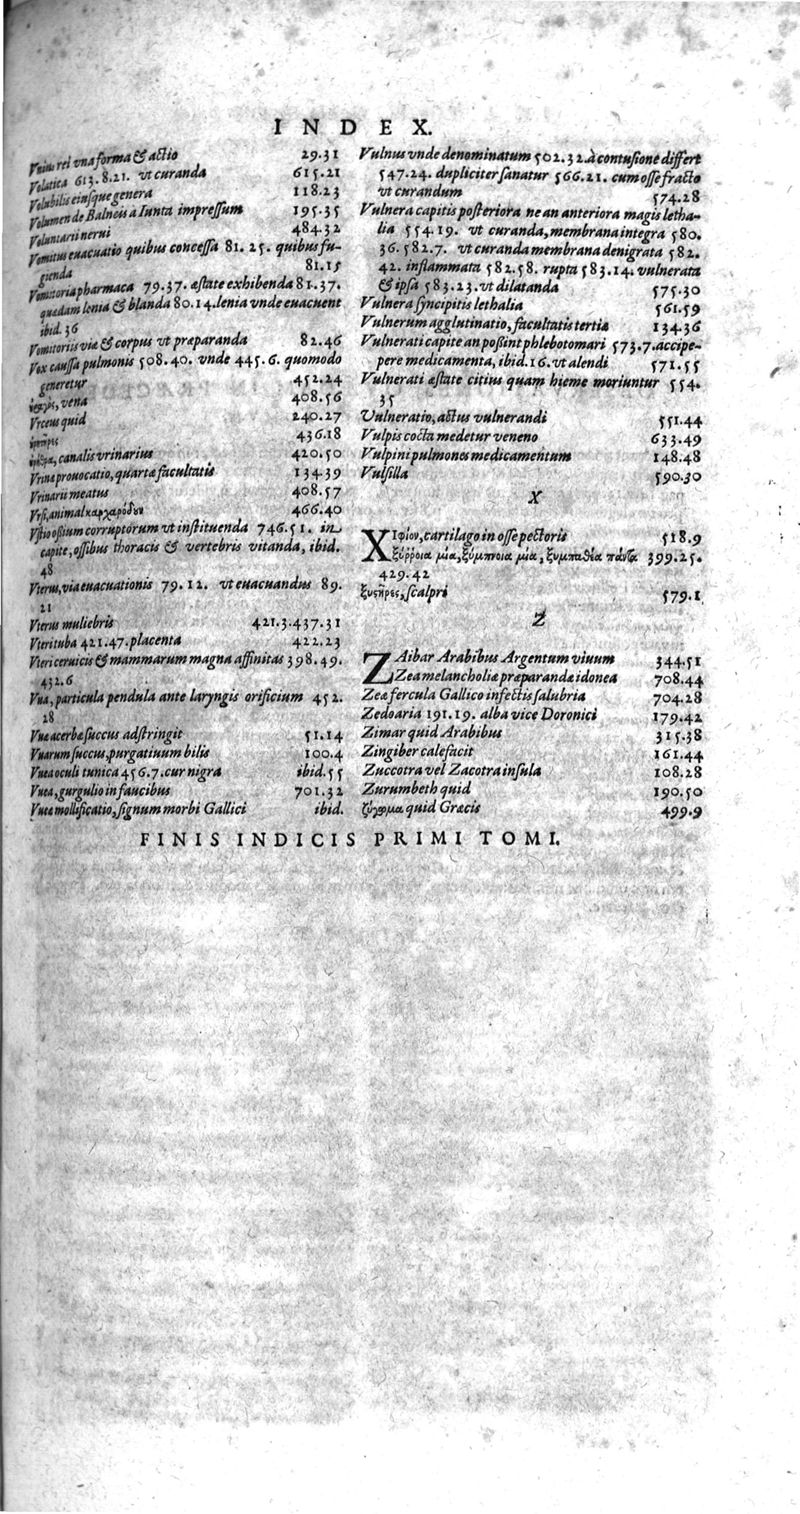 INDEX.
Vnius rei vna forma & actio 29.31
Volatica 613.8.21. vt curanda 615.21
Volubilis eiusque genera 118.23
Volumen de Balneis a Iunta impressum 195.35
Voluntarii nerui 484.32
Vomitus euacuatio quibus concessa 81.25. quibus fu-
gienda 81.15
Vomitoria pharmaca 79.37. æstate exhibenda 81.37.
quædam lenia & blanda 80.14. lenia vnde euacuent
ibid. 36
Vomitoriis viæ & corpus vt præparanda 82.46
Vox caussa pulmonis 508.40. vnde 445.6. quomodo
generetur 452.24
vena 408.56
Vrceus quid 240.27
436.18
canalis vrinarius 420.50
Vrinæ prouocatio, quartæ facultatis 134.39
Vrinariis meatus 408.57
Vrsi, animal καρχαρόδουν 466.40
Vstio ossium corruptorum vt instituenda 746.51. in
capite, ossibus thoracis & vertebris vitanda, ibid.
48
Vterus, via euacuationis 79.12. vt euacuandus 89.
21
Vterus muliebris 421.3.437.31
Vteri tuba 421.47. placenta 422.23
Vteri ceruicis & mammarum magna affinitas 398.49.
432.6
Vua, particula pendula ante laryngis orificium 452.
28
Vuæ acerbæ succus adstringit 51.14
Vuarum succus, purgatiuum bilis 100.4
Vuea oculi tunica 456.7. cur nigra ibid. 55
Vuea, gurgulio in faucibus 701.32
Vuea mollificatio, signum morbi Gallici ibid.
Vulnus vnde denominatum 502.32. à contusione differt
547.24. dupliciter sanatur 566.21. cum osse fracto
vt curandum 574.28
Vulnera capitis posteriora ne an anteriora magis letha-
lia 554.19. vt curanda, membrana integra 580.
36. 582.7. vt curanda membrana denigrata 582.
42. inflammata 582.58. rupta 583.14. vulnerata
& ipsa 583.23. vt dilatanda 575.30
Vulnera syncipitis lethalia 561.59
Vulnerum agglutinatio, facultatis tertiæ 134.36
Vulnerati capite an possint phlebotomari 573.7. accipe-
pere medicamenta, ibid. 16. vt alendi 571.55
Vulnerati æstate citius quam hieme moriuntur 554.
35
Vulneratio, actus vulnerandi 551.44
Vulpis cocta medetur veneno 633.49
Vulpini pulmones medicamentum 148.48
Vulsilla 590.30
X
XIφίον, cartilago in osse pectoris 518.9
ξύῤῥοια μία, ξύμπνοια μία, ξυμπαθέα πάντα 399.25.
429.42
ξυστῆρες, scalpri 579.1
Z
ZAibar Arabibus Argentum viuum 344.51
Zea melancholiæ præparandæ idonea 708.44
Zeæ fercula Gallico infectis salubria 704.28
Zedoaria 191.19. alba vice Doronici 179.42
Zimar quid Arabibus 315.38
Zingiber calefacit 161.44
Zuccotra vel Zacotra insula 108.28
Zurumbeth quid 190.50
ζύγωμα quid Græcis 499.9
FINIS INDICIS PRIMI TOMI.